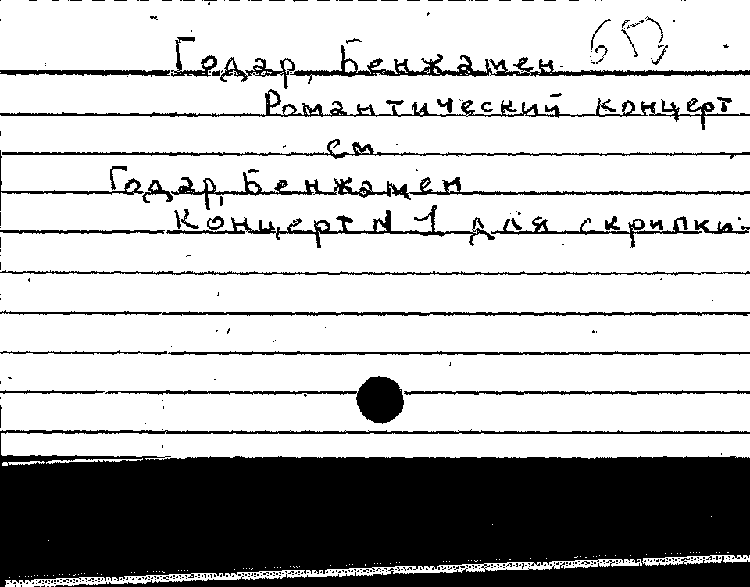 Годар, Бенжамен
Романтический концерт
см
Годар, Бенжамен
Концерт N 1 для скрипки